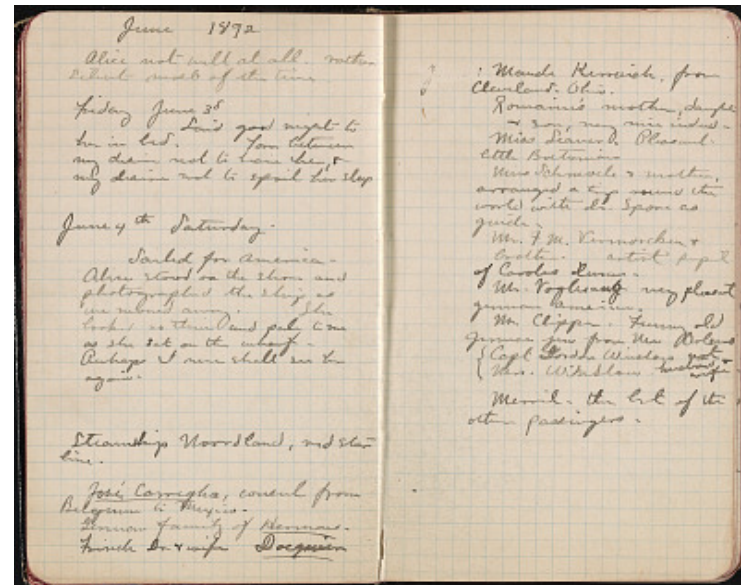 June 1892
Alice not well at all. rather
silent most of the time
Friday June 3d
Said good night to
her in bed. Torn between
my desire not to leave her, &
my desire not to spoil her sleep
June 4th Saturday.
Sailed for America.
Alice stood on the shore and
photographed the ship as
we moved away. She
looked so thin and pale to me
as she sat on the wharf.
Perhaps I never shall see her
again.
Steamship Noordland, red star
line.
José, consul from
Belgium to Mexico.
German family of
French Dr. & wife
Maude, from
Cleveland. Ohio.
mother, daughter
& son, very nice indeed.
Miss. Pleasant
little Bostonian
Miss & mother,
arranged a trip round the
world with Dr. as
guide.
Mr. F. M. &
brother. artist pupil
of Carolus Duran.
Mr. very pleasant
german american.
Mr. Funny old
german jew from New Orleans
Capt Gordon Winslow
Mrs. Winslow husband & wife
the list of the
other passengers.